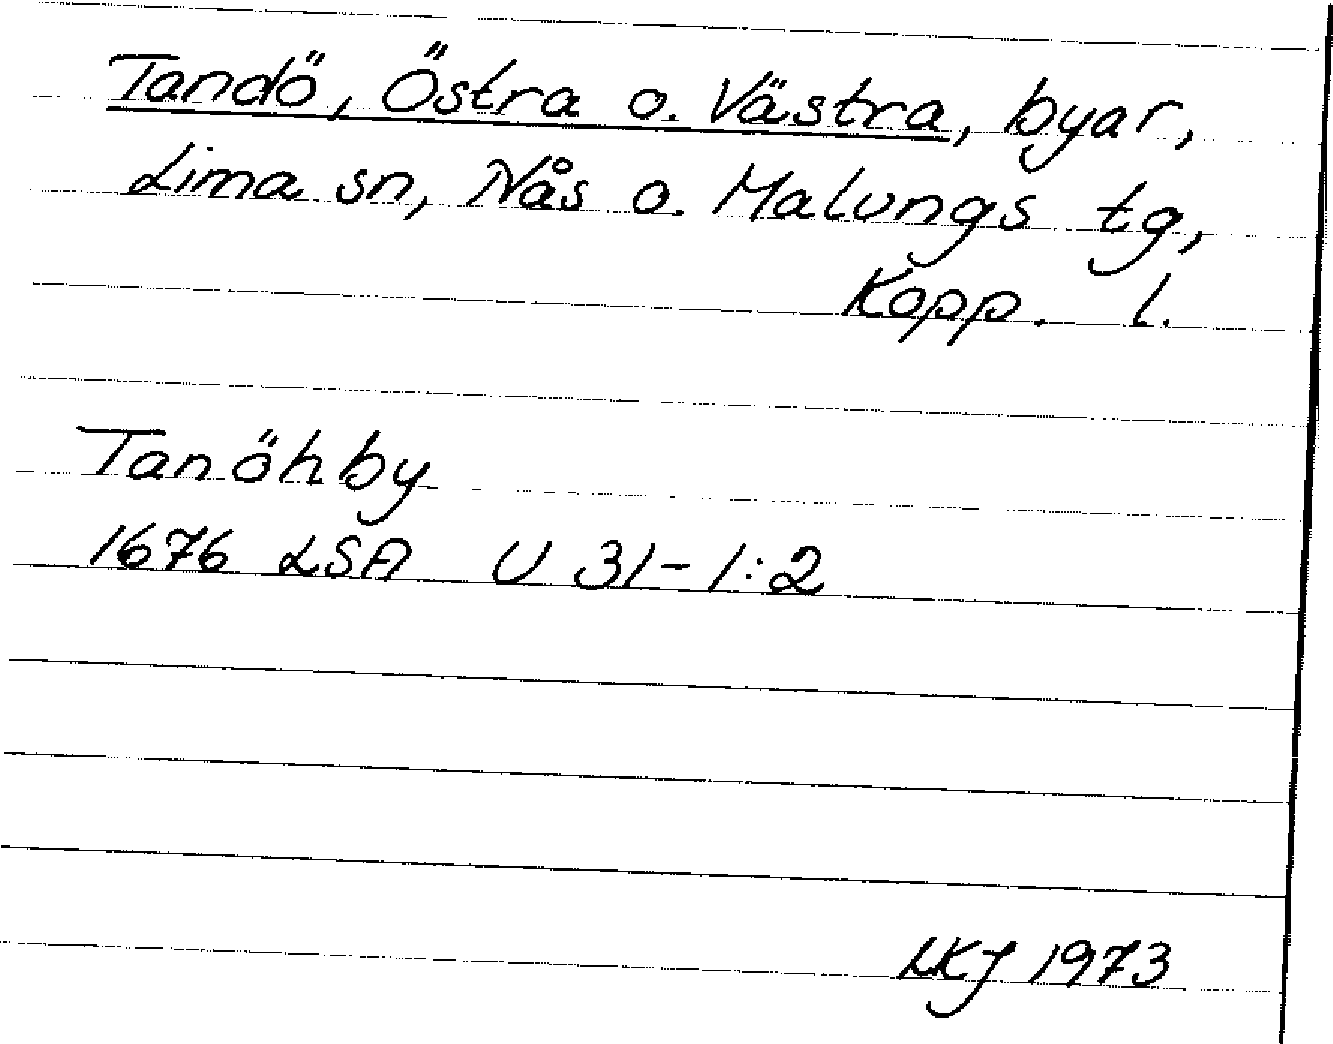 Tandö, Östra o. Västra, byar,
Lima sn, Nås o. Malungs tg,
Kopp. l.
Tanöhby
1676 LSA U 31-1:2
LKJ 1973